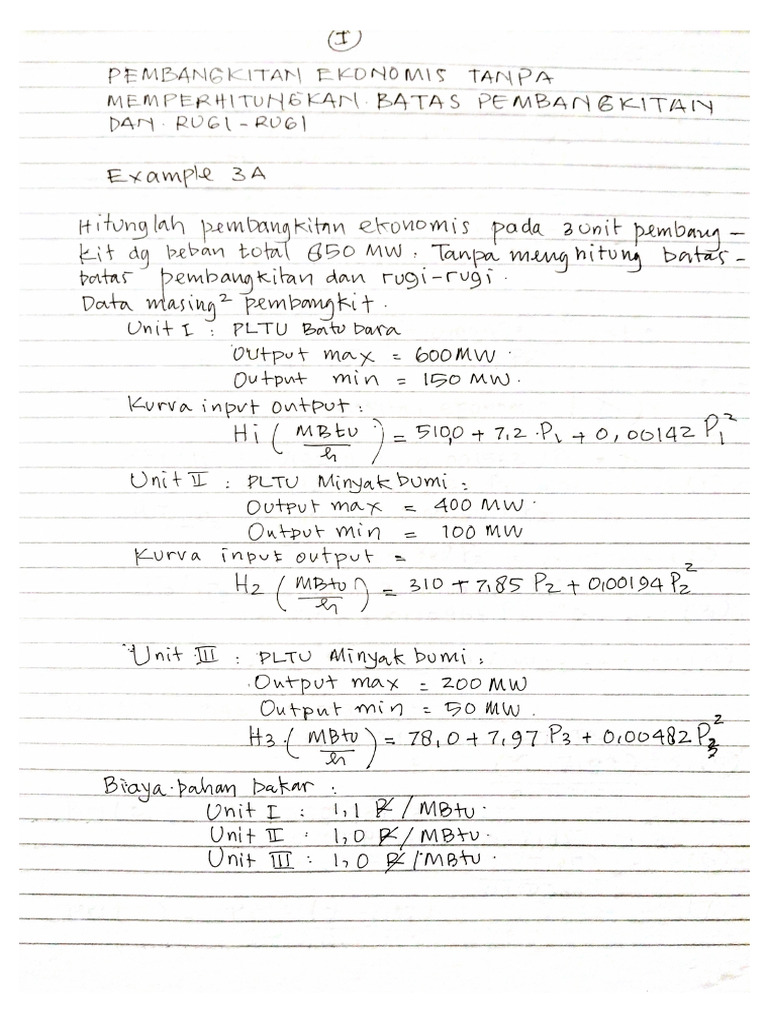 (I)
PEMBANGKITAN EKONOMIS TANPA
MEMPERHITUNGKAN BATAS PEMBANGKITAN
DAN RUGI-RUGI
Example 3A
Hitunglah pembangkitan ekonomis pada 3 unit pembang-
kit dg beban total 850 MW. Tanpa menghitung batas-
batas pembangkitan dan rugi-rugi.
Data masing² pembangkit.
Unit I : PLTU Batu bara
Output max = 600 MW.
Output min = 150 MW.
Kurva input output :
Hi (MBtu/h) = 510,0 + 7,2 . P₁ + 0,00142 P₁²
Unit II : PLTU Minyak bumi :
Output max = 400 MW.
Output min = 100 MW
Kurva input output =
H2 (MBtu/h) = 310 + 7,85 P₂ + 0,00194 P₂²
Unit III : PLTU Minyak bumi :
Output max = 200 MW
Output min = 50 MW.
H3 (MBtu/h) = 78,0 + 7,97 P₃ + 0,00482 P₃²
Biaya bahan bakar :
Unit I : 1,1 R/MBtu.
Unit II : 1,0 R/MBtu.
Unit III : 1,0 R/MBtu.